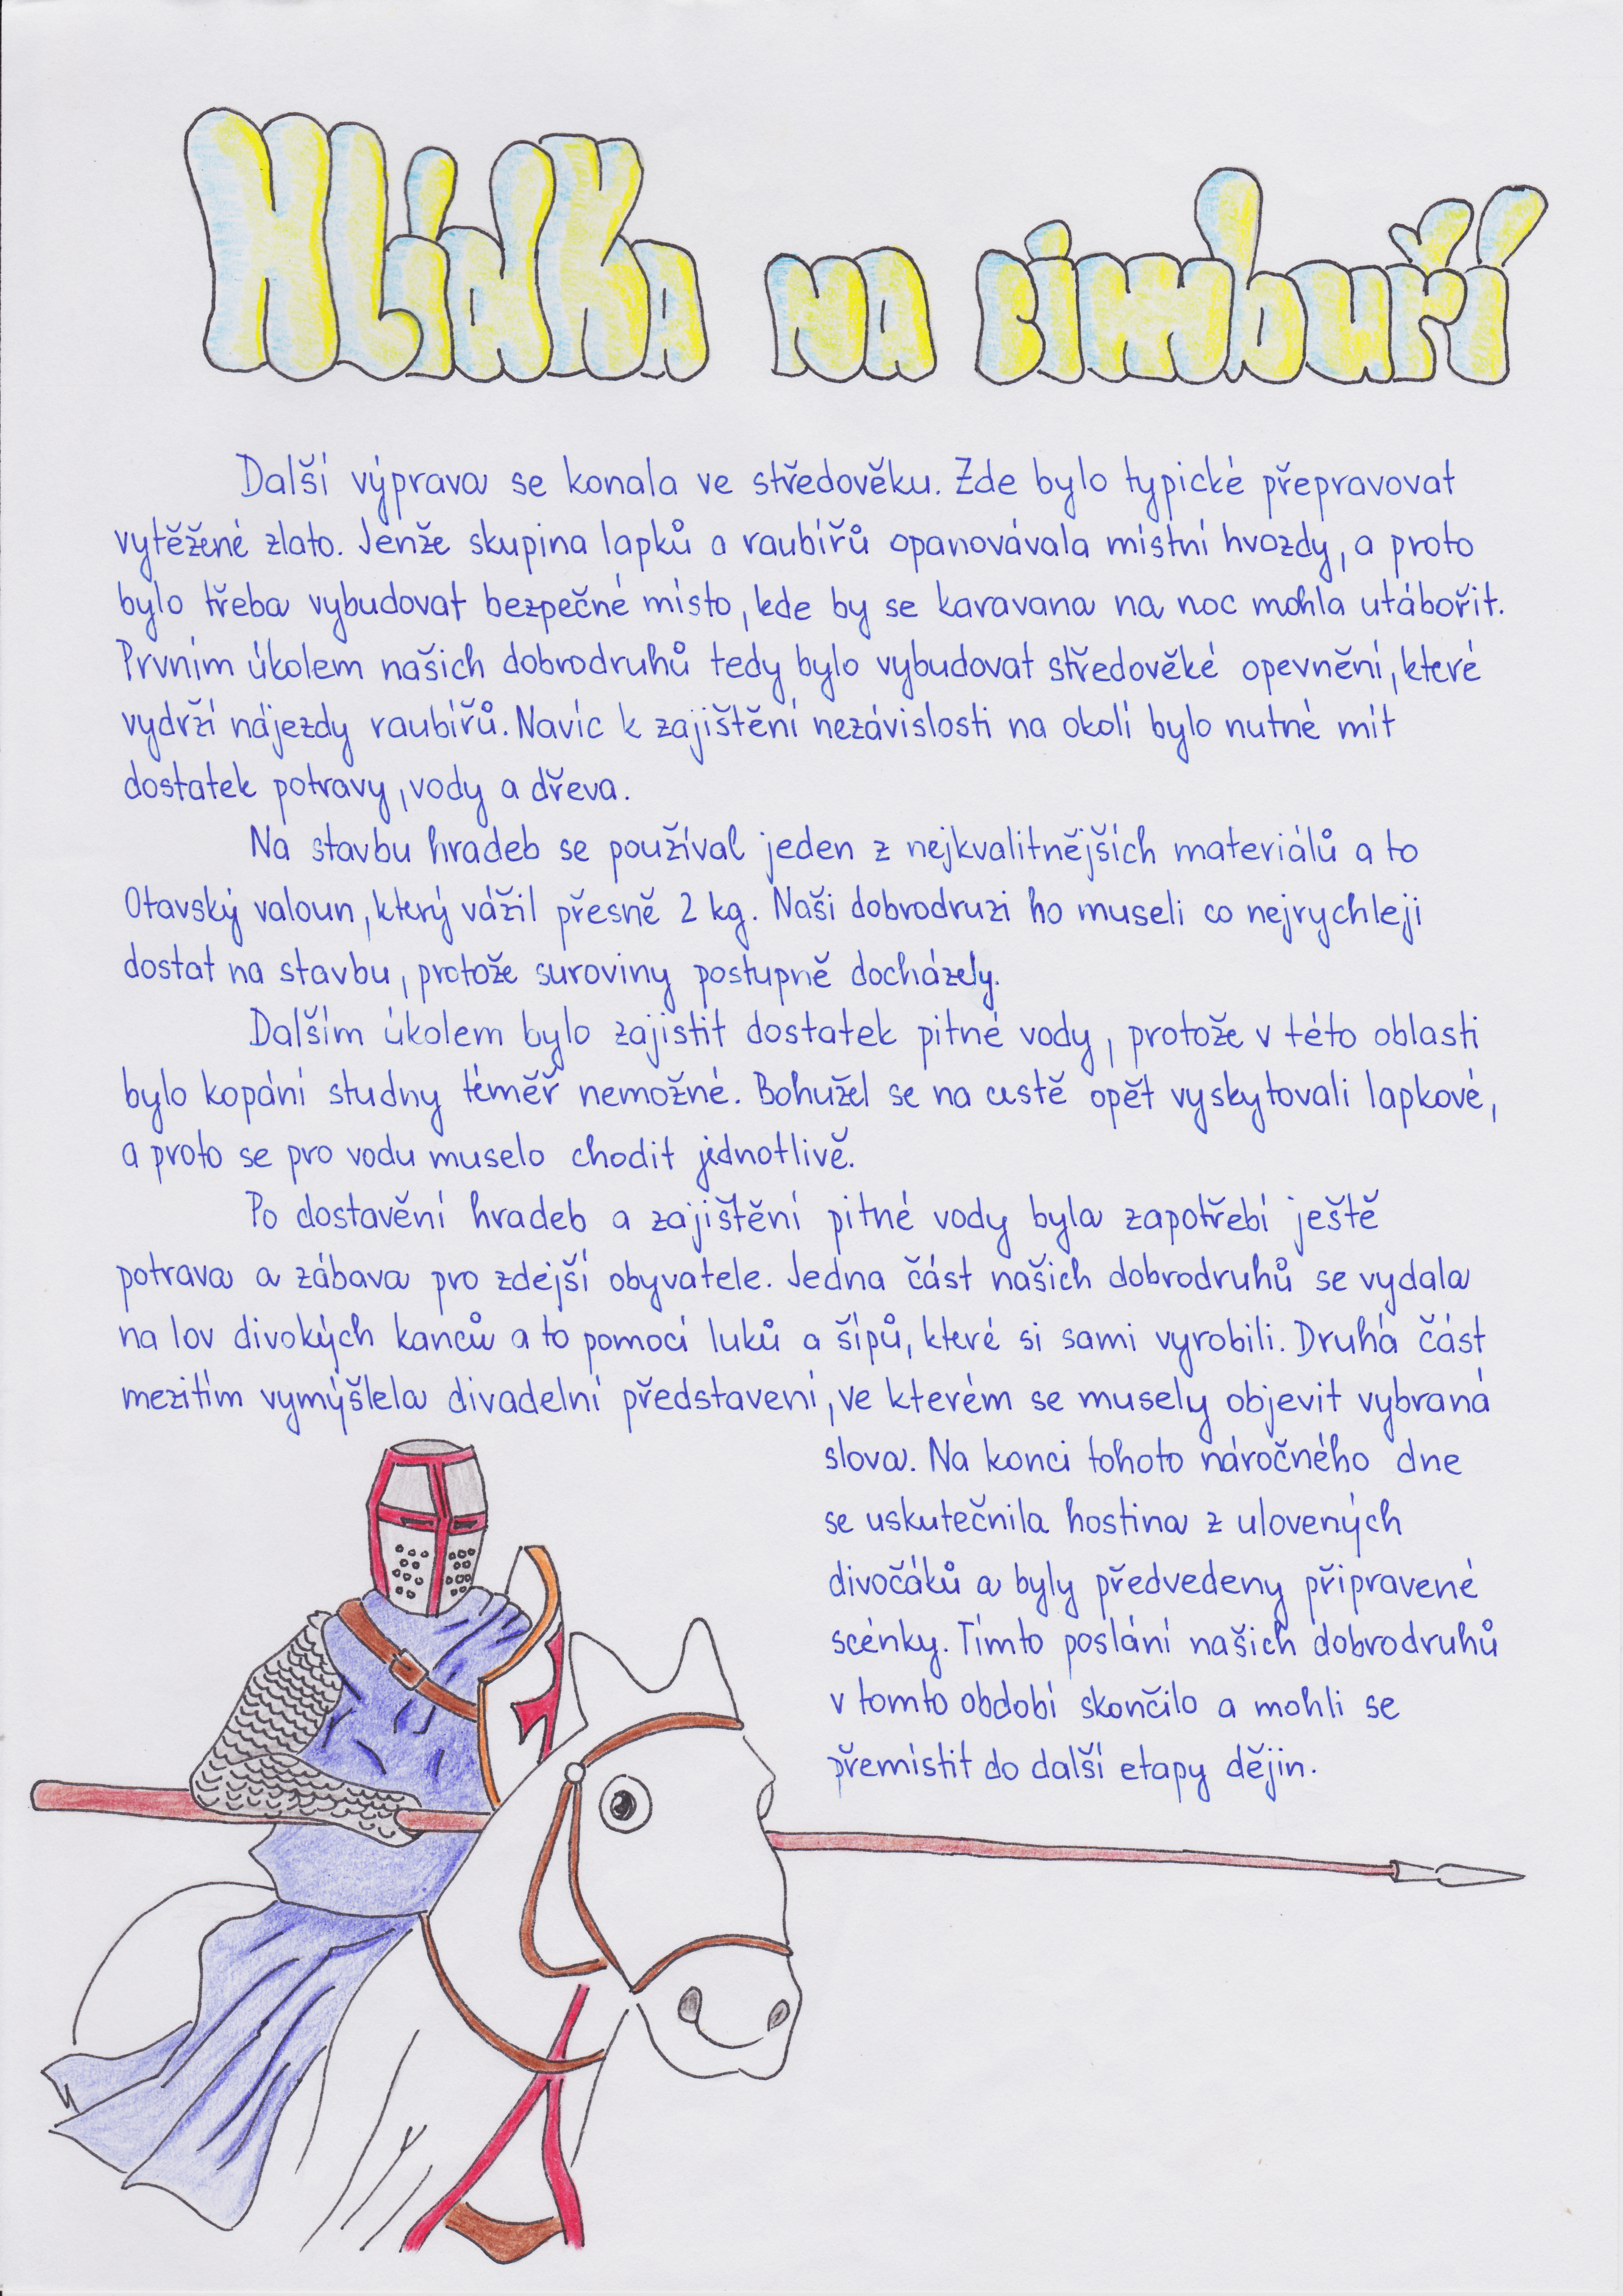 Hlídka na cimbuří
Další výprava se konala ve středověku. Zde bylo typické přepravovat
vytěžené zlato. Jenže skupina lapků a raubířů opanovávala místní hvozdy, a proto
bylo třeba vybudovat bezpečné místo, kde by se karavana na noc mohla utábořit.
Prvním úkolem našich dobrodruhů tedy bylo vybudovat středověké opevnění, které
vydrží nájezdy raubířů. Navíc k zajištění nezávislosti na okolí bylo nutné mít
dostatek potravy, vody a dřeva.
Na stavbu hradeb se používal jeden z nejkvalitnějších materiálů a to
Otavský valoun, který vážil přesně 2 kg. Naši dobrodruzi ho museli co nejrychleji
dostat na stavbu, protože suroviny postupně docházely.
Dalším úkolem bylo zajistit dostatek pitné vody, protože v této oblasti
bylo kopání studny téměř nemožné. Bohužel se na cestě opět vyskytovali lapkové,
a proto se pro vodu muselo chodit jednotlivě.
Po dostavění hradeb a zajištění pitné vody byla zapotřebí ještě
potrava a zábava pro zdejší obyvatele. Jedna část našich dobrodruhů se vydala
na lov divokých kanců a to pomocí luků a šípů, které si sami vyrobili. Druhá část
mezitím vymýšlela divadelní představení, ve kterém se musely objevit vybraná
slova. Na konci tohoto náročného dne
se uskutečnila hostina z ulovených
divočáků a byly předvedeny připravené
scénky. Tímto poslání našich dobrodruhů
v tomto období skončilo a mohli se
přemístit do další etapy dějin.